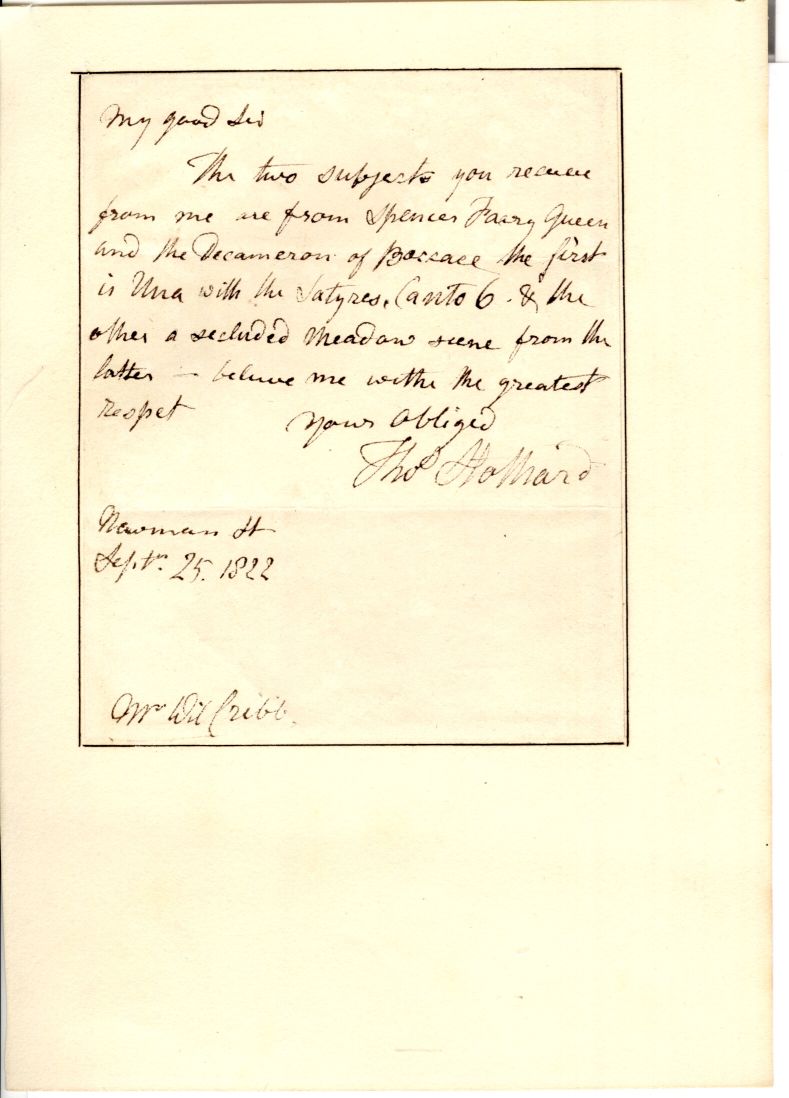 My good Sir
The two subjects you receive
from me are from Spencers Fairy Queen
and the Decameron of Boccace, the first
is Una with the Satyres, Canto 6. & the
other a secluded Meadow scene from the
latter – believe me withe the greatest
respet Yours Obliged
Thos Stothard
Newman St
Septr. 25. 1822
Mr Wil Cribb.